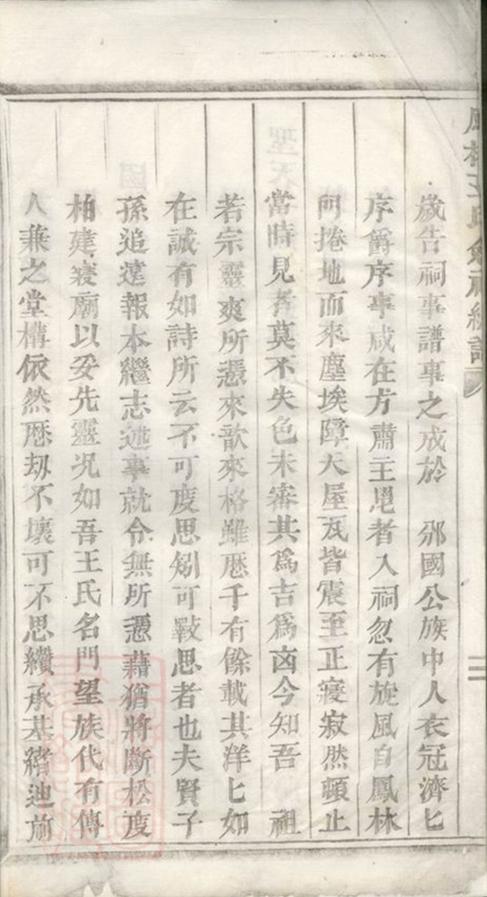 歲告祠事譜事之成於 邠國公族中人衣冠濟匕
序爵序事咸在方肅主鬯者入祠忽有旋風自鳳林
門捲地而來塵埃障天屋瓦皆震至正寢寂然頓止
當時見者莫不失色未審其爲吉爲凶今知吾 祖
若宗靈爽所憑來歆來格雖歷千有餘載其洋匕如
在誠有如詩所云不可度思矧可斁思者也夫賢子
孫追遠報本繼志述事就令無所憑藉猶將斷松度
柏建寢廟以妥先靈況如吾王氏名門望族代有傳
人兼之堂構依然歷刼不壞可不思纘承基緒迪前